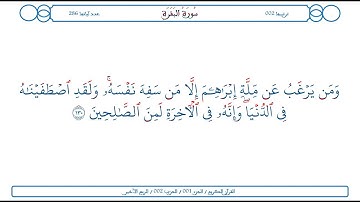 ترتيبها 002 سُورَةُ البَقَرَةِ عدد آياتها 286
وَمَن يَرْغَبُ عَن مِّلَّةِ إِبْرَٰهِـۧمَ إِلَّا مَن سَفِهَ نَفْسَهُۥۚ وَلَقَدِ ٱصْطَفَيْنَٰهُ
فِى ٱلدُّنْيَاۖ وَإِنَّهُۥ فِى ٱلْأَخِرَةِ لَمِنَ ٱلصَّٰلِحِينَ ١٣٠
القرآن الكريم / الجزء 001 / الحزب 002 / الربع الأخير